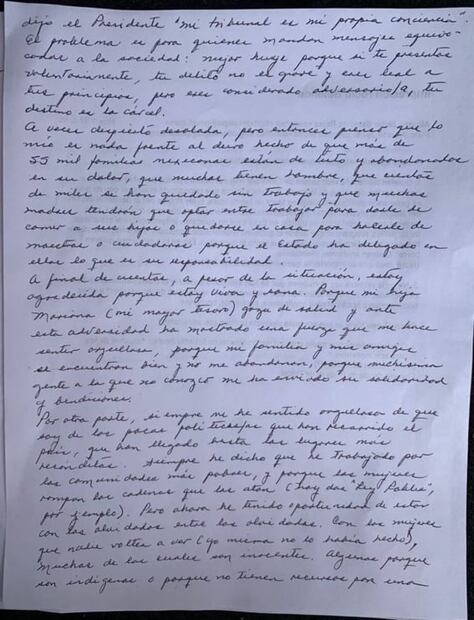 dijo el Presidente "mi tribunal es mi propia conciencia".
El problema es para quienes mandan mensajes equivo-
cados a la sociedad: mejor huye porque si te presentas
voluntariamente, tu delito no es grave y eres leal a
tus principios, pero eres considerado adversario/a, tu
destino es la cárcel.
A veces despierto desolada, pero entonces pienso que lo
mío es nada frente al duro hecho de que más de
55 mil familias mexicanas están de luto y abandonadas
en su dolor, que muchas tienen hambre, que cientos
de miles se han quedado sin trabajo y que muchas
madres tendrán que optar entre trabajar para darle de
comer a sus hijos o quedarse en casa para hacerla de
maestras o cuidadoras porque el Estado ha delegado en
ellas lo que es su responsabilidad.
A final de cuentas, a pesar de la situación, estoy
agradecida porque estoy viva y sana. Porque mi hija
Mariana (mi mayor tesoro) goza de salud y ante
esta adversidad ha mostrado una fuerza que me hace
sentir orgullosa, porque mi familia y mis amigos
se encuentran bien y no me abandonan, porque muchísima
gente a la que no conozco me ha enviado su solidaridad
y bendiciones.
Por otra parte, siempre me he sentido orgullosa de que
soy de las pocas políticas que han recorrido el
país, que han llegado hasta los lugares más
recónditos. Siempre he dicho que he trabajado por
las comunidades más pobres, y porque las mujeres
rompan las cadenas que las atan (hay dos "Ley
por ejemplo). Pero ahora he tenido oportunidad de estar
con las olvidadas entre las olvidadas. Con las mujeres
que nadie voltea a ver (yo misma no lo había hecho),
muchas de las cuales son inocentes. Algunas porque
son indígenas o porque no tienen recursos para una